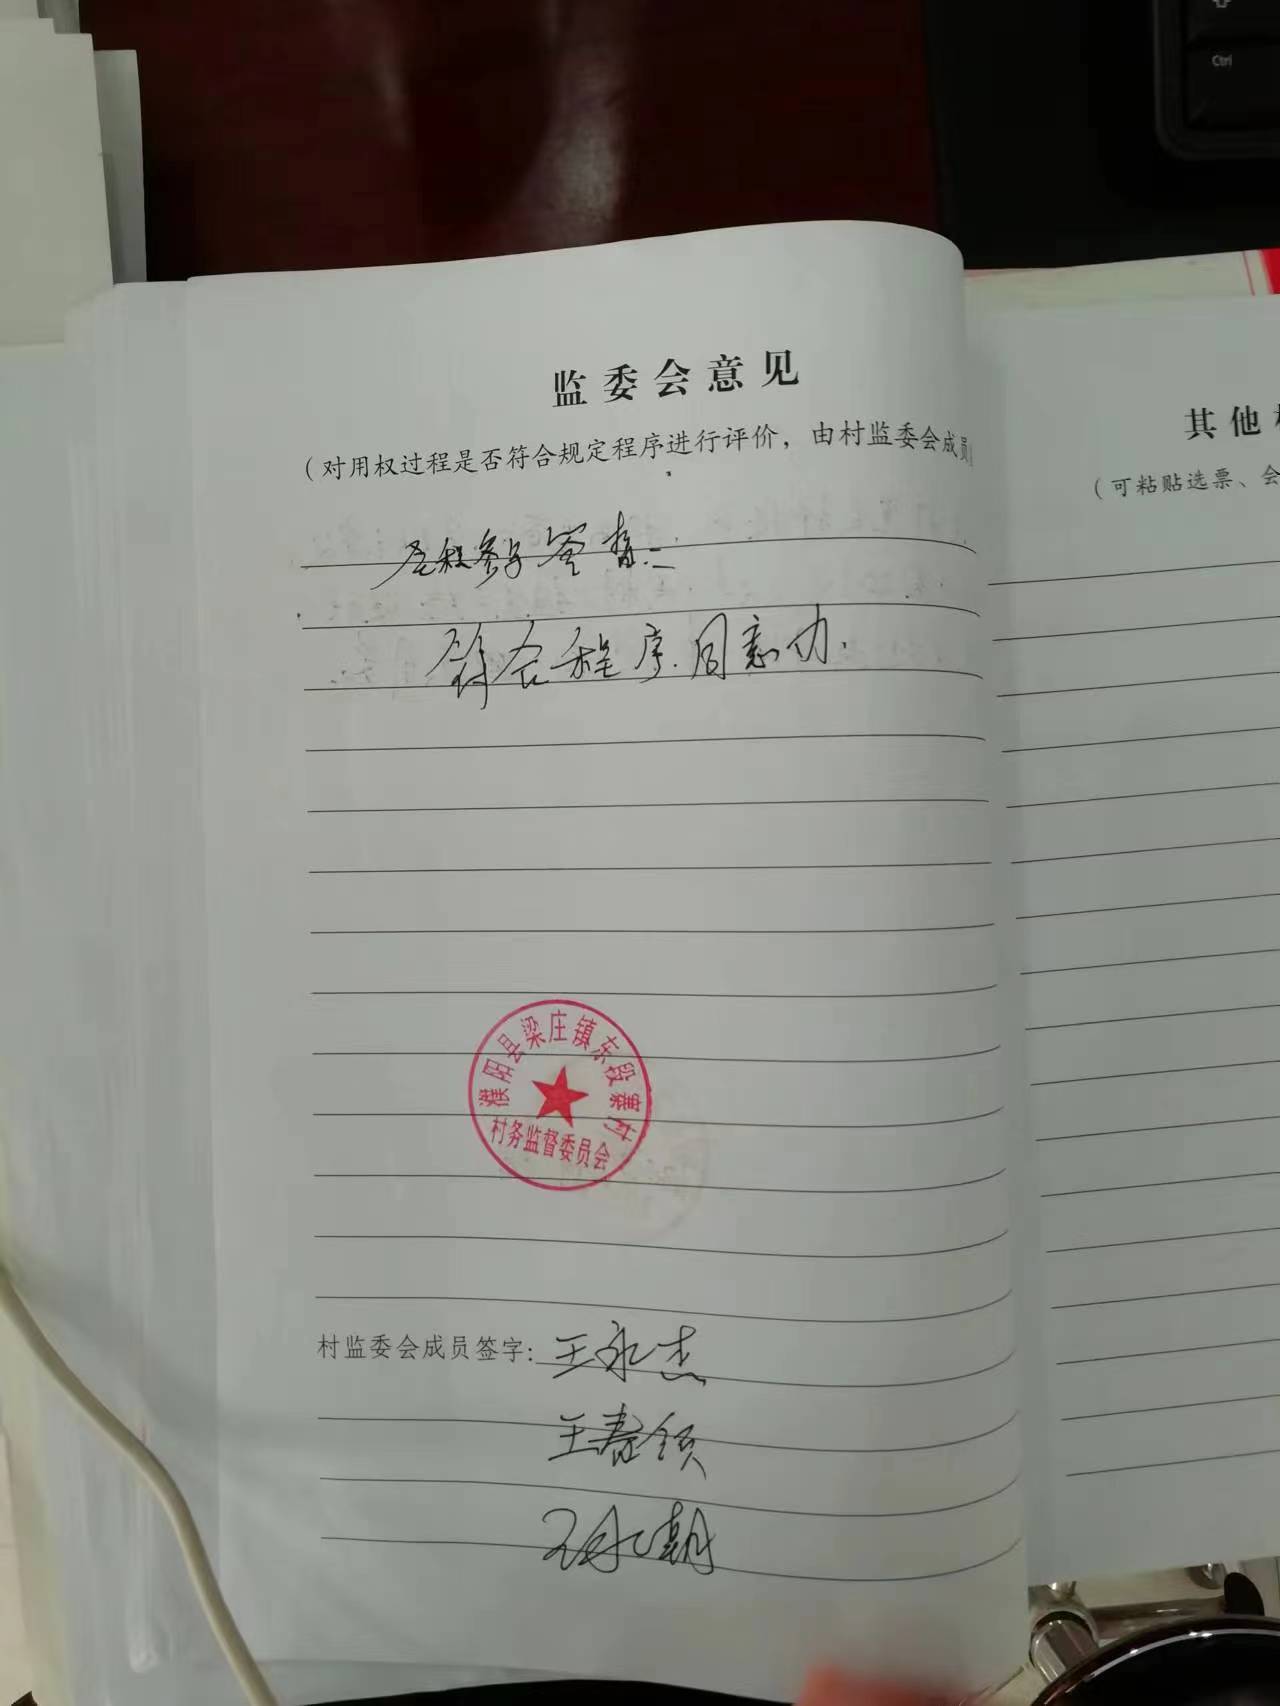 Ctrl
监委会意见
（对用权过程是否符合规定程序进行评价，由村监委会成员
全程参与
符合程序.同意办.
濮阳县梁庄镇东段寨村
村务监督委员会
村监委会成员签字：王永杰
王春领
王永朝
其他
（可粘贴选票、会